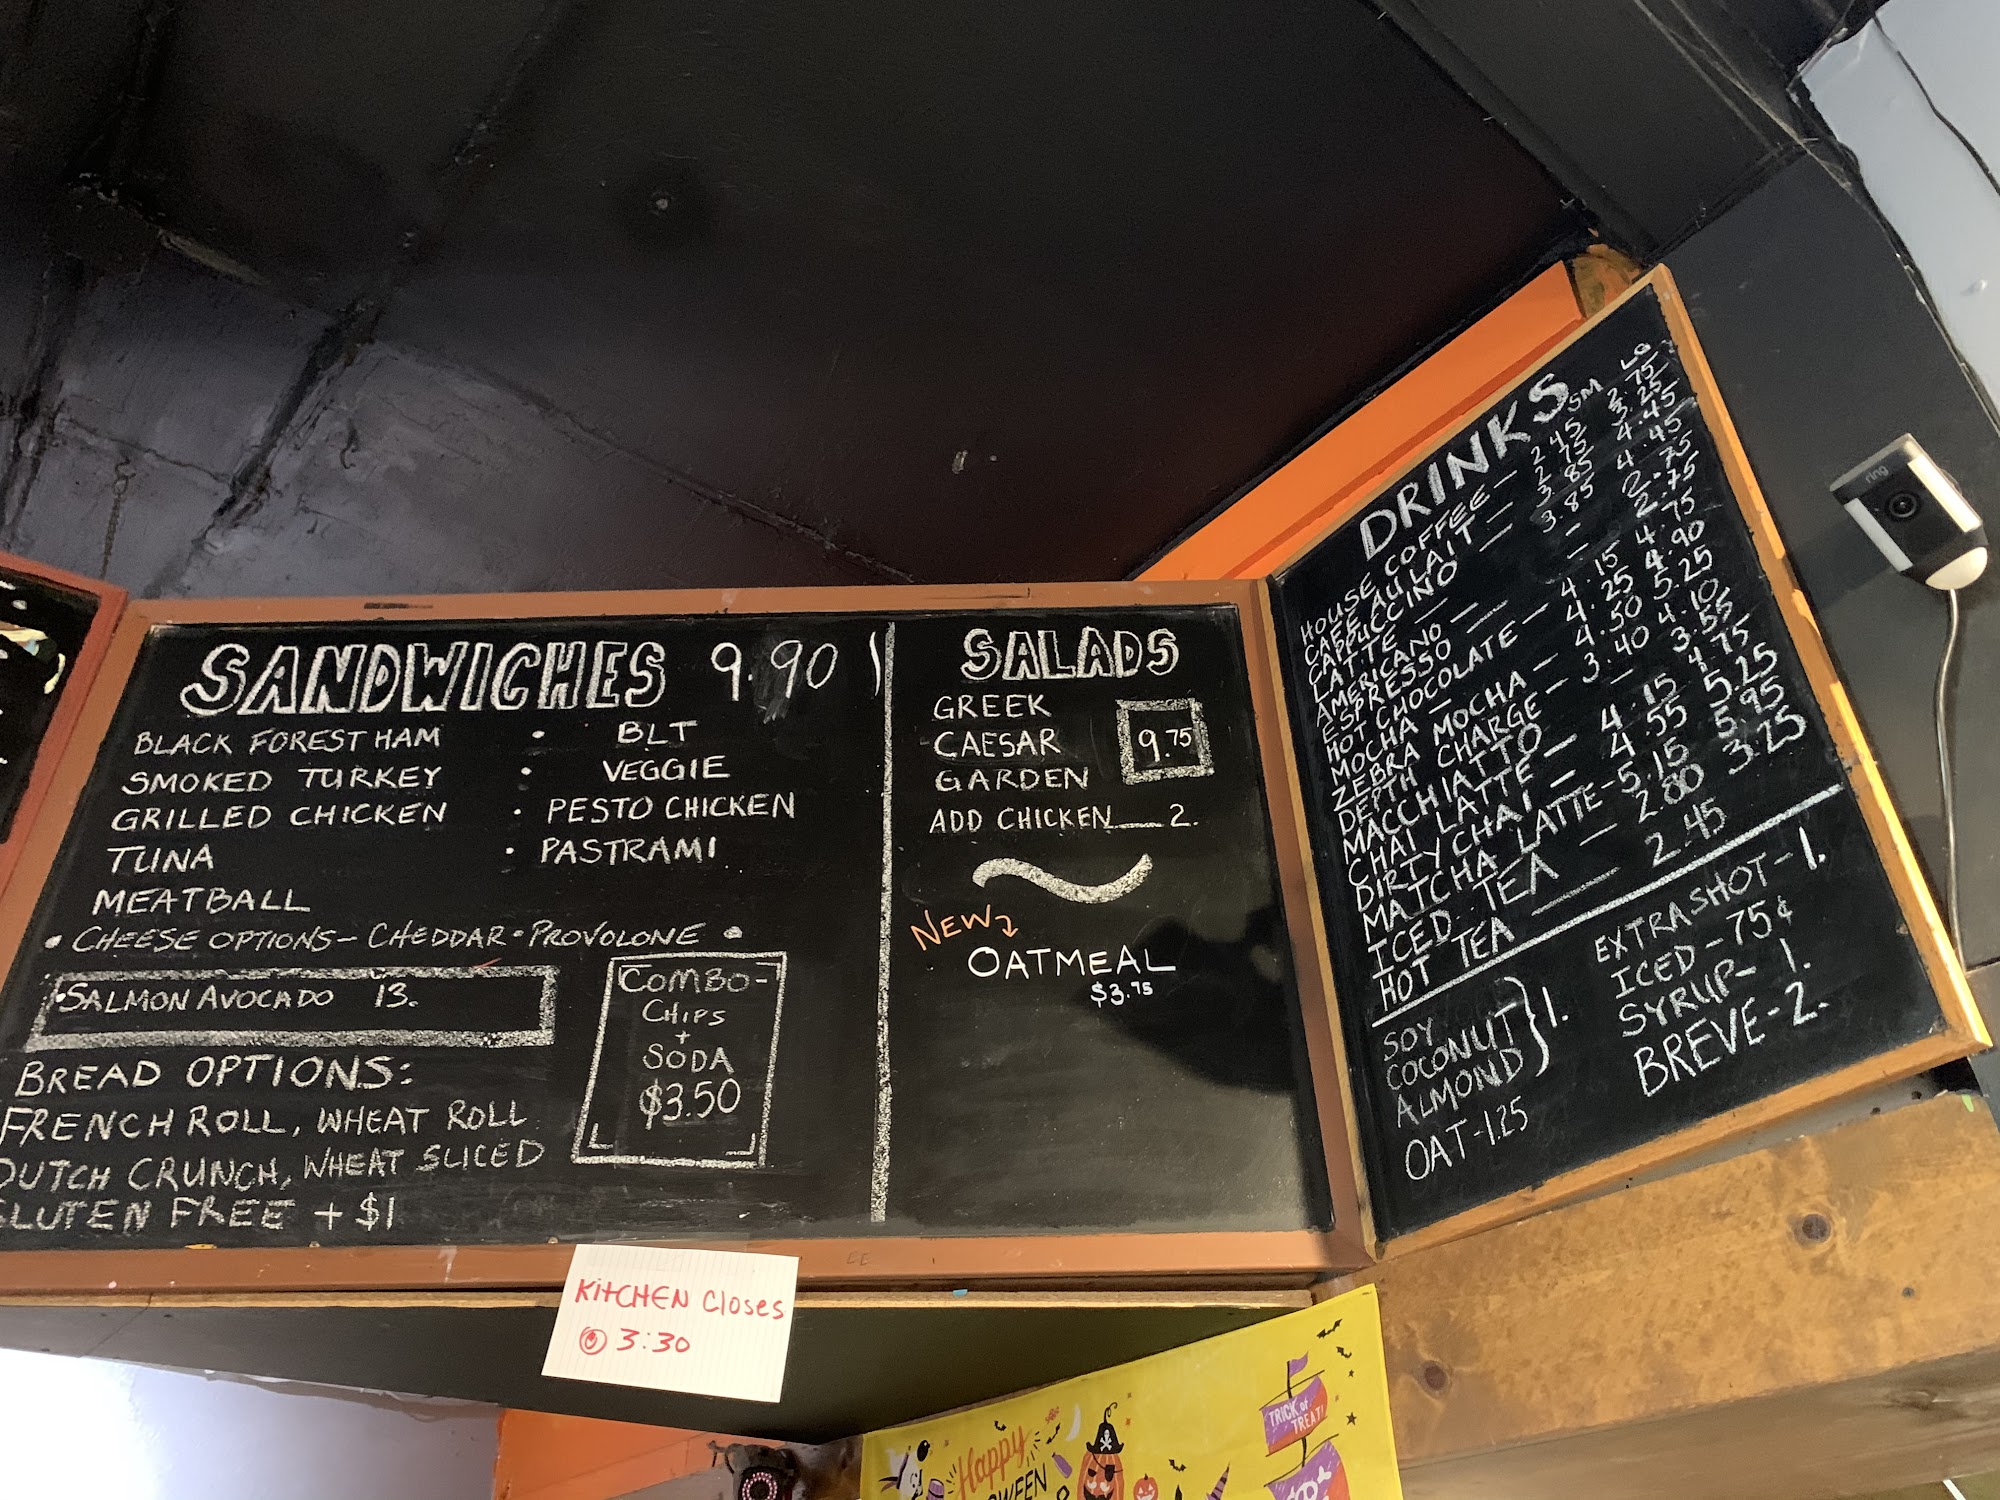 SANDWICHES 9.90
BLACK FOREST HAM
SMOKED TURKEY
GRILLED CHICKEN
TUNA
MEATBALL
• BLT
• VEGGIE
• PESTO CHICKEN
• PASTRAMI
• CHEESE OPTIONS- CHEDDAR • PROVOLONE •
• SALMON AVOCADO 13.
BREAD OPTIONS:
FRENCH ROLL, WHEAT ROLL
DUTCH CRUNCH, WHEAT SLICED
GLUTEN FREE + $1
COMBO-
CHIPS
+
SODA
$3.50
SALADS
GREEK
CAESAR
GARDEN
9.75
ADD CHICKEN 2.
NEW
OATMEAL
$3.75
DRINKS SM LG
HOUSE COFFEE - 2.45 2.75
CAFE AU LAIT - 2.75 3.25
CAPPUCCINO - 3.85 4.45
LATTE - 3.85 4.45
AMERICANO - - 2.75
ESPRESSO - - 2.75
HOT CHOCOLATE - 4.15 4.75
MOCHA - 4.25 4.90
ZEBRA MOCHA - 4.50 5.25
DEPTH CHARGE - 3.40 4.10
MACCHIATTO - 3.55
CHAI LATTE - 4.15 4.75
DIRTY CHAI - 4.55 5.25
MATCHA LATTE - 5.15 5.95
ICED TEA - 2.80 3.25
HOT TEA - 2.45
SOY
COCONUT
ALMOND
} 1.
OAT - 1.25
EXTRA SHOT - 1.
ICED - 75¢
SYRUP - 1.
BREVE - 2.
KITCHEN Closes
@ 3:30
Happy
TRICK or
TREAT!
ring